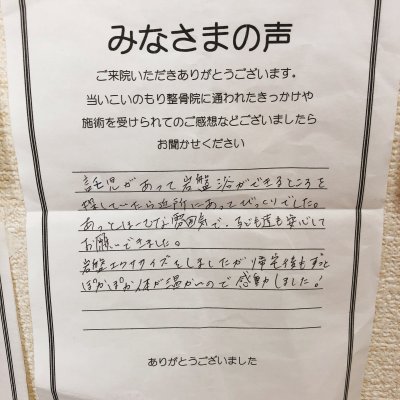 みなさまの声
ご来院いただきありがとうございます。
当いこいのもり整骨院に通われたきっかけや
施術を受けられてのご感想などございましたら
お聞かせください
託児があって岩盤浴ができるところを
探していたら近所にあってびっくりでした。
あっとほーむな雰囲気で、子ども達も安心して
お願いできました。
岩盤エクササイズをしましたが帰宅後もずっと
ぽかぽか体が温かいので感動しました！
ありがとうございました